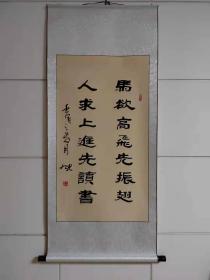 馬欲高飛先振翅
人求上進先讀書